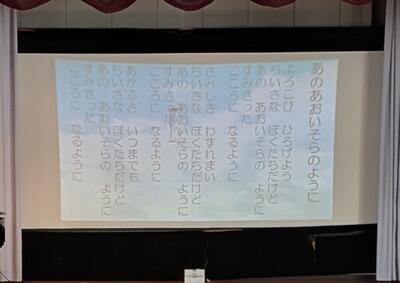 あのあおいそらのように
よろこび ひろげよう
ちいさな ぼくたちだけど
あの あおいそらの ように
すみきった
こころに なるように
さみしさ わすれまい
ちいさな ぼくたちだけど
あの あおいそらの ように
すみきった
こころに なるように
あかるさ いつまでも
ちいさな ぼくだちだけど
あの あおいそらの ように
すみきった
こころに なるように